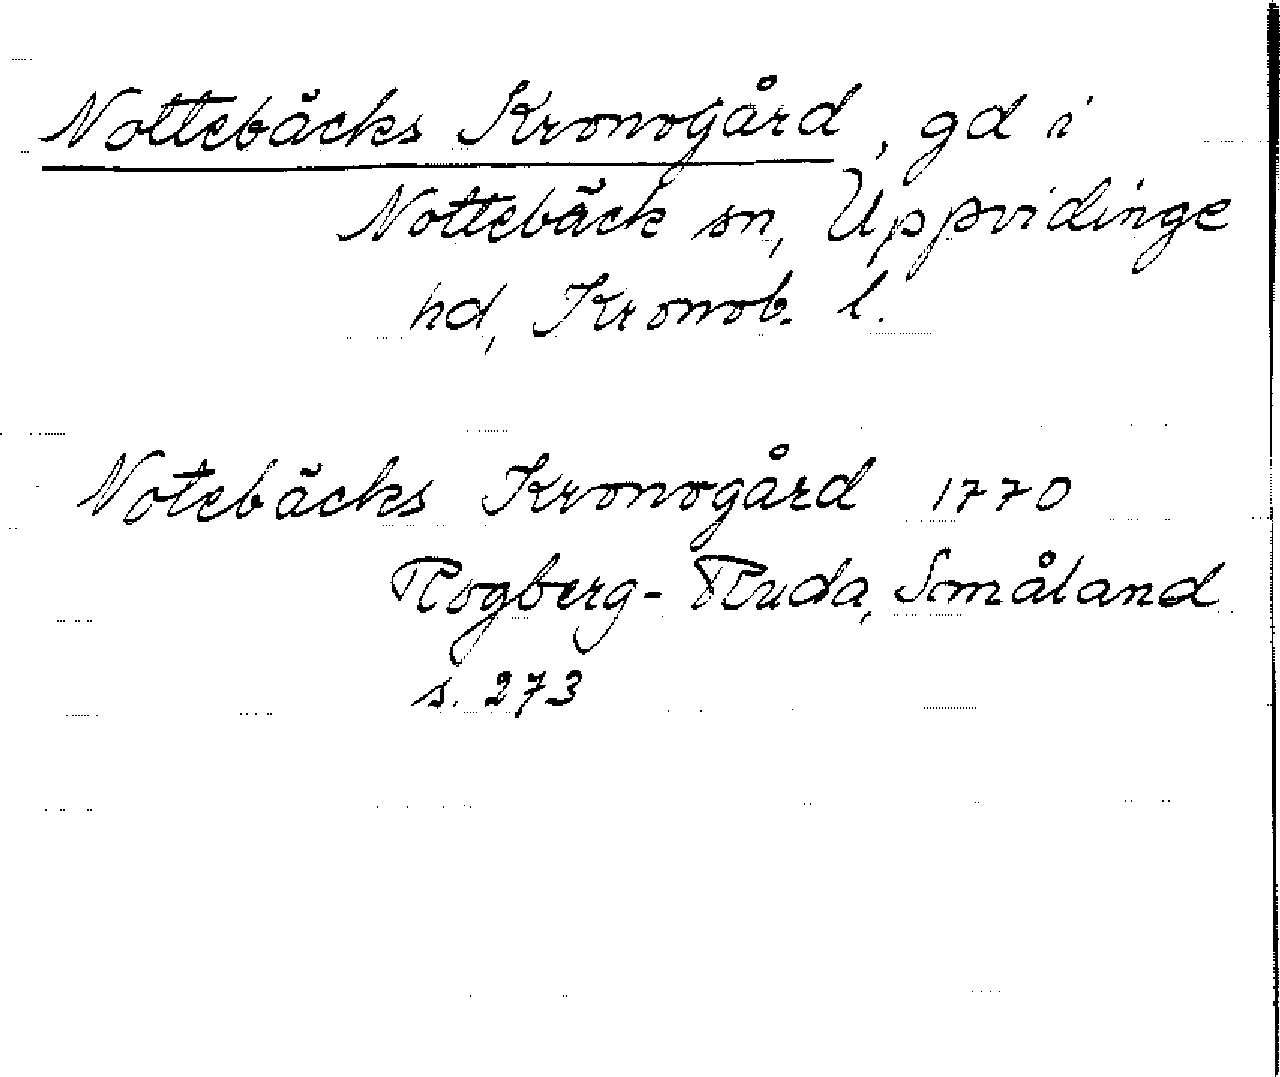 Nottebäcks Kronogård, gd i
Nottebäck sn, Uppvidinge
hd, Kronob. l.
Notebäcks Kronogård 1770
Rogberg-Ruda, Småland
s. 273